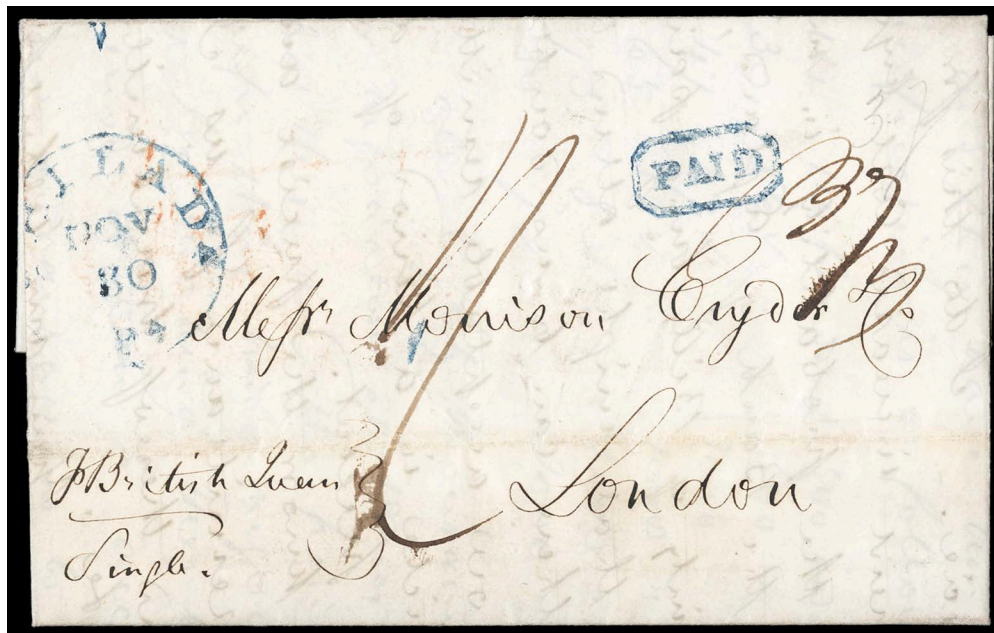 PHILADA
NOV
30
Pa
PAID
Messrs Morrison Cryder & Co.
London
p British Queen
Single.